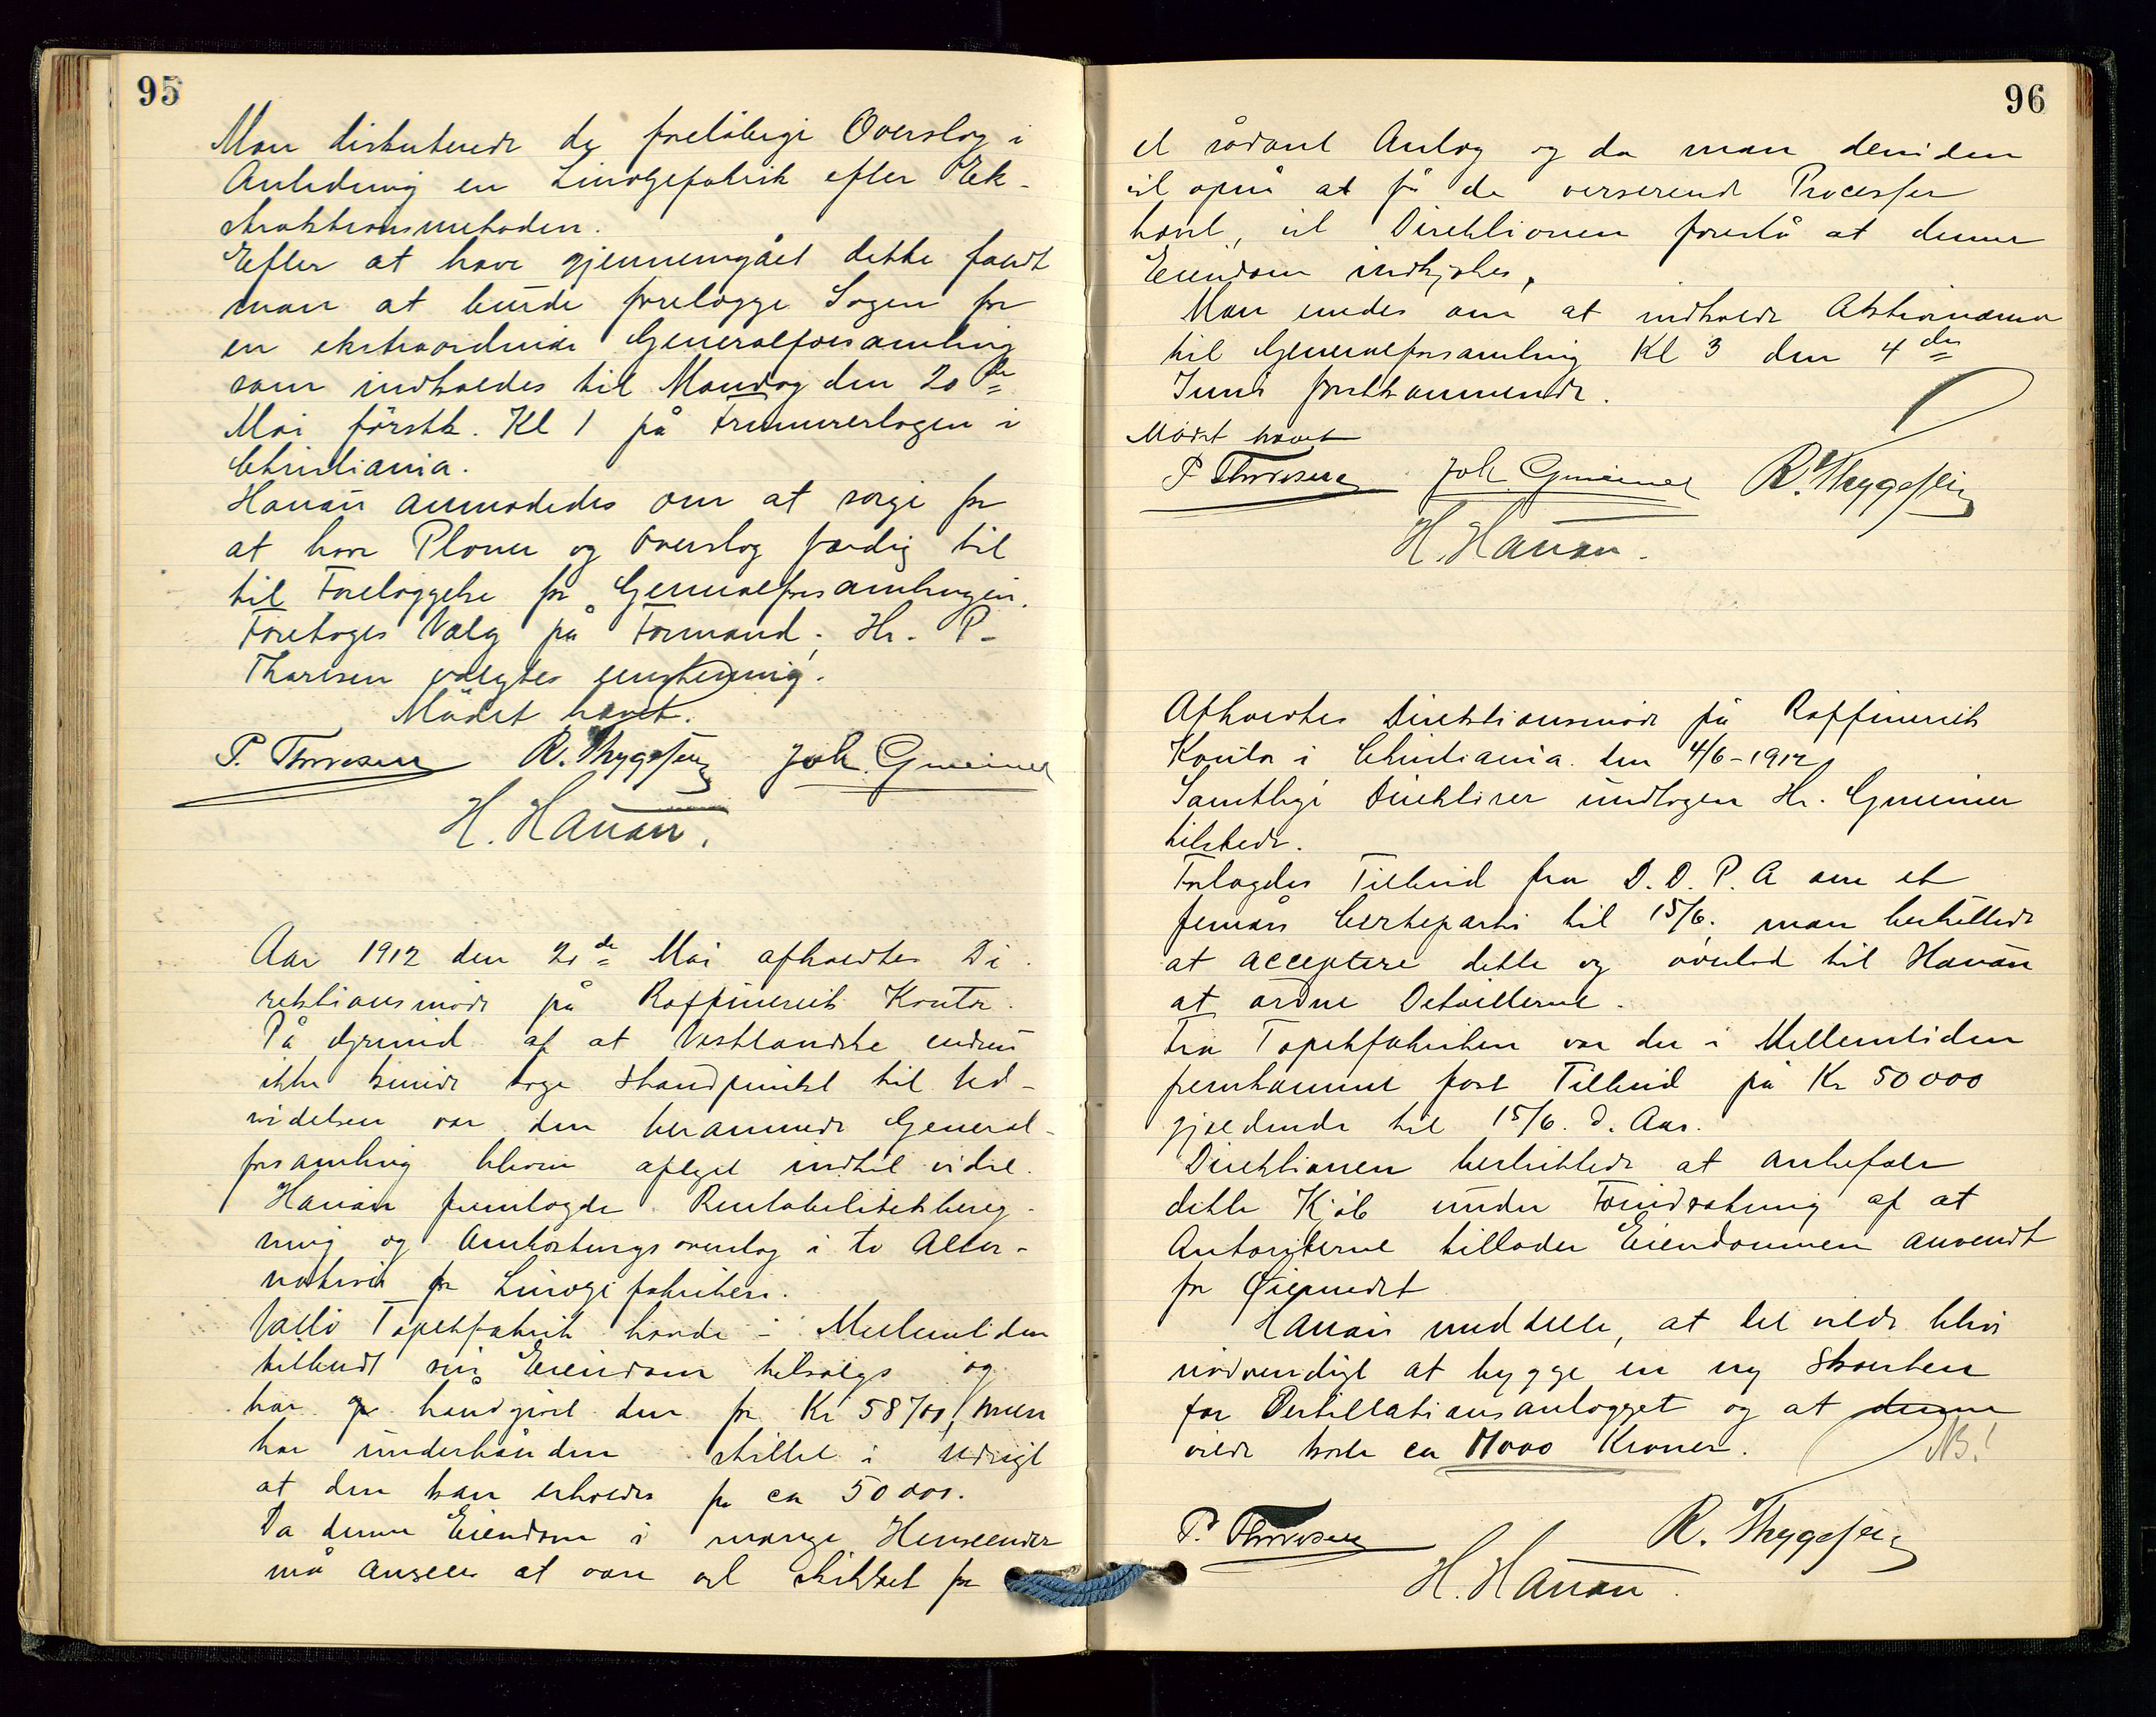 95
Man diskuterede de foreløbige Overslag i
Anledning en Linoljefabrik efter Ek-
straktionsmethoden.
Efter at have gjennemgået dette fandt
man at burde forelægge Sagen for
en ekstraordinær Generalforsamling
som indkaldes til Mandag den 20de
Mai förstk. Kl 1 på Frimurerlogen i
Christiania.
Hauan anmodedes om at sørge for
at have Planer og Overslag færdig til
til Forelæggelse for Generalforsamlingen.
Foretoges Valg på Formand; Hr. P.
Thoresen valgtes enstemmig.
Mödet hævet.
P. Thoresen R. Thygesen Joh. Gmeiner
H. Hauan.
Aar 1912 den 21de Mai afholdtes Di-
rektionsmöde på Raffineriets Kontor.
På Grund af at Vestlandske endnu
ikke kunde tage Standpunkt til Ud-
videlsen var den berammede General-
forsamling bleven aflyst indtil videre.
Hauan fremlagde Rentabilitetsbereg-
ning og Anlægsoverslag i to Alter-
nativer for Linoljefabriken.
Vallö Tapetfabrik havde i Mellemtiden
tilbudt sin Eiendom tilsalgs og
har håndgivet den for Kr 58700, men
har underhånden stillet i Udsigt
at den kan erholdes for ca 50000.
Da denne Eiendom i mange Henseender
må ansees at være vel skikket for
96
et sådant Anlæg og da man desuden
vil opnå at få de verserende Processer
hævet, vil Direktionen foreslå at denne
Eiendom indkjøbes.
Man enedes om at indkalde Aktionærerne
til Generalforsamling Kl 3 den 4de
Juni førstkommende.
Mödet hævet
P. Thoresen Joh. Gmeiner R. Thygesen
H. Hauan.
Afholdtes Direktionsmöde på Raffineriets
Kontor i Christiania den 4/6-1912.
Samtlige Direktører undtagen Hr. Gmeiner
tilstede.
Forelagdes Tilbud fra D.D.P.A om et
femårs Certeparti til 15/6; man besluttede
at acceptere dette og overlod til Hauan
at ordne Detaillerne.
Fra Tapetfabriken var der i Mellemtiden
fremkommet fast Tilbud på Kr 50000
gjældende til 15/6. d. Aar.
Direktionen besluttede at anbefale
dette Kjøb under Forudsætning af at
Autoriteterne tillader Eiendommen anvendt
for Øiemedet
Hauan meddelte, at det vilde blive
nødvendigt at bygge en ny Skorsten
for Destillationsanlægget og at denne
vilde koste ca 11000 Kroner.
NB!
P. Thoresen R. Thygesen
H. Hauan.